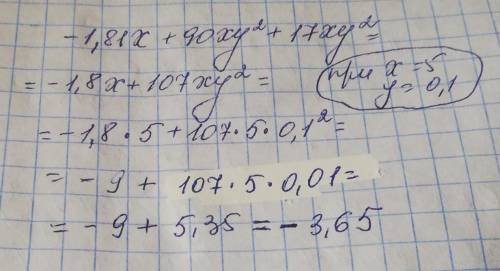 -1,81x + 90xy² + 17xy² =
= -1,8x + 107xy² =
при x = 5
y = 0,1
= -1,8 · 5 + 107 · 5 · 0,1² =
= - 9 + 107 · 5 · 0,01 =
= - 9 + 5,35 = - 3,65